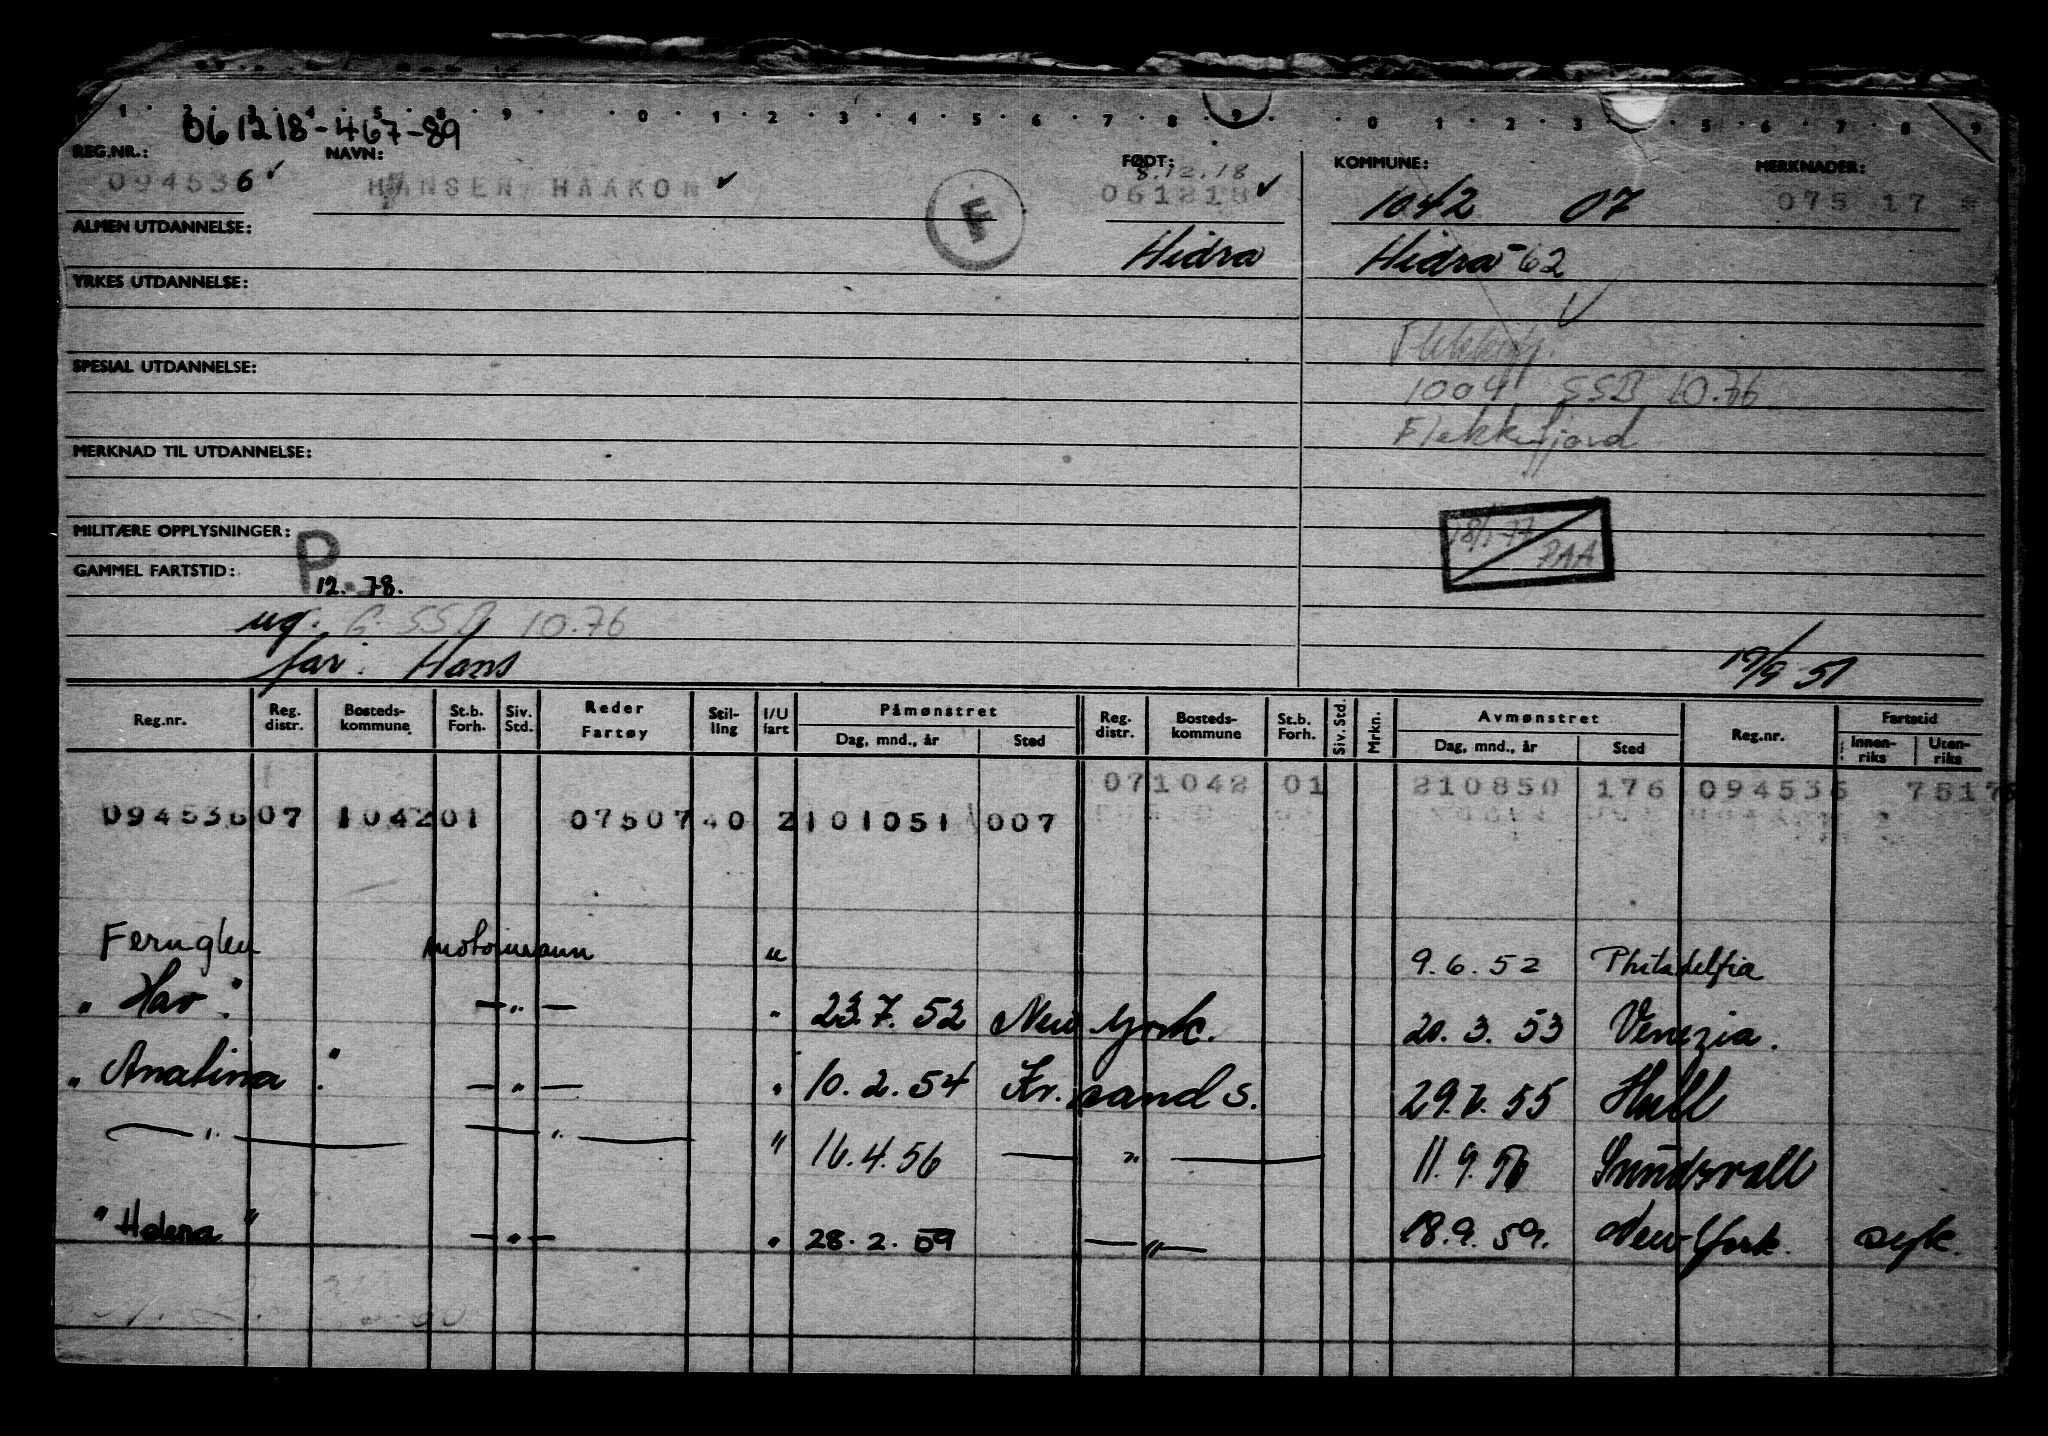 1 2 3 4 5 8 9 0 1 2 3 4 5 6 7 8 9 0 1 2 3 5 6 7 8 9
061218-467-89
REG.NR.: NAVN: FØDT: KOMMUNE: MERKNADER:
8.12.18
094536 ✓ HANSEN HAAKON ✓ 061218 ✓ 1042 07 075 17
F
ALMEN UTDANNELSE:
Hidra Hidra -62
YRKES UTDANNELSE:
SPESIAL UTDANNELSE:
1004 SSB 10.76
Flekkefjord
MERKNAD TIL UTDANNELSE:
MILITÆRE OPPLYSNINGER:
18/1-77 PAA
GAMMEL FARTSTID: P 12.-78.
ug. G. SSB 10.76
far: Hans 19/9-51
Reg.nr. Reg. distr. Bosteds-kommune St.b. Forh. Siv. Std. Reder Fartøy Stil-ling I/U fart Påmønstret Dag, mnd., år Sted Reg. distr. Bosteds-kommune St.b. Forh. Siv. Std. Mrkn. Avmønstret Dag, mnd., år Sted Reg.nr. Fartstid Innen-riks Uten-riks
071042 01 210850 176 094536 7517
094536 07 104201 07507 40 2 101051 007
Fernglen motormann u 9.6.52 Philadelfia
"Hav". —"— " 23.7.52 New York. 20.3.53 Venezia.
"Anatina". —"— " 10.2.54 Kr.sand S. 29.7.55 Hull
—"— —"— " 16.4.56 —"— 11.9.56 Sundsvall
"Helena" —"— " 28.2.59 —"— 18.9.59. New York. syk.